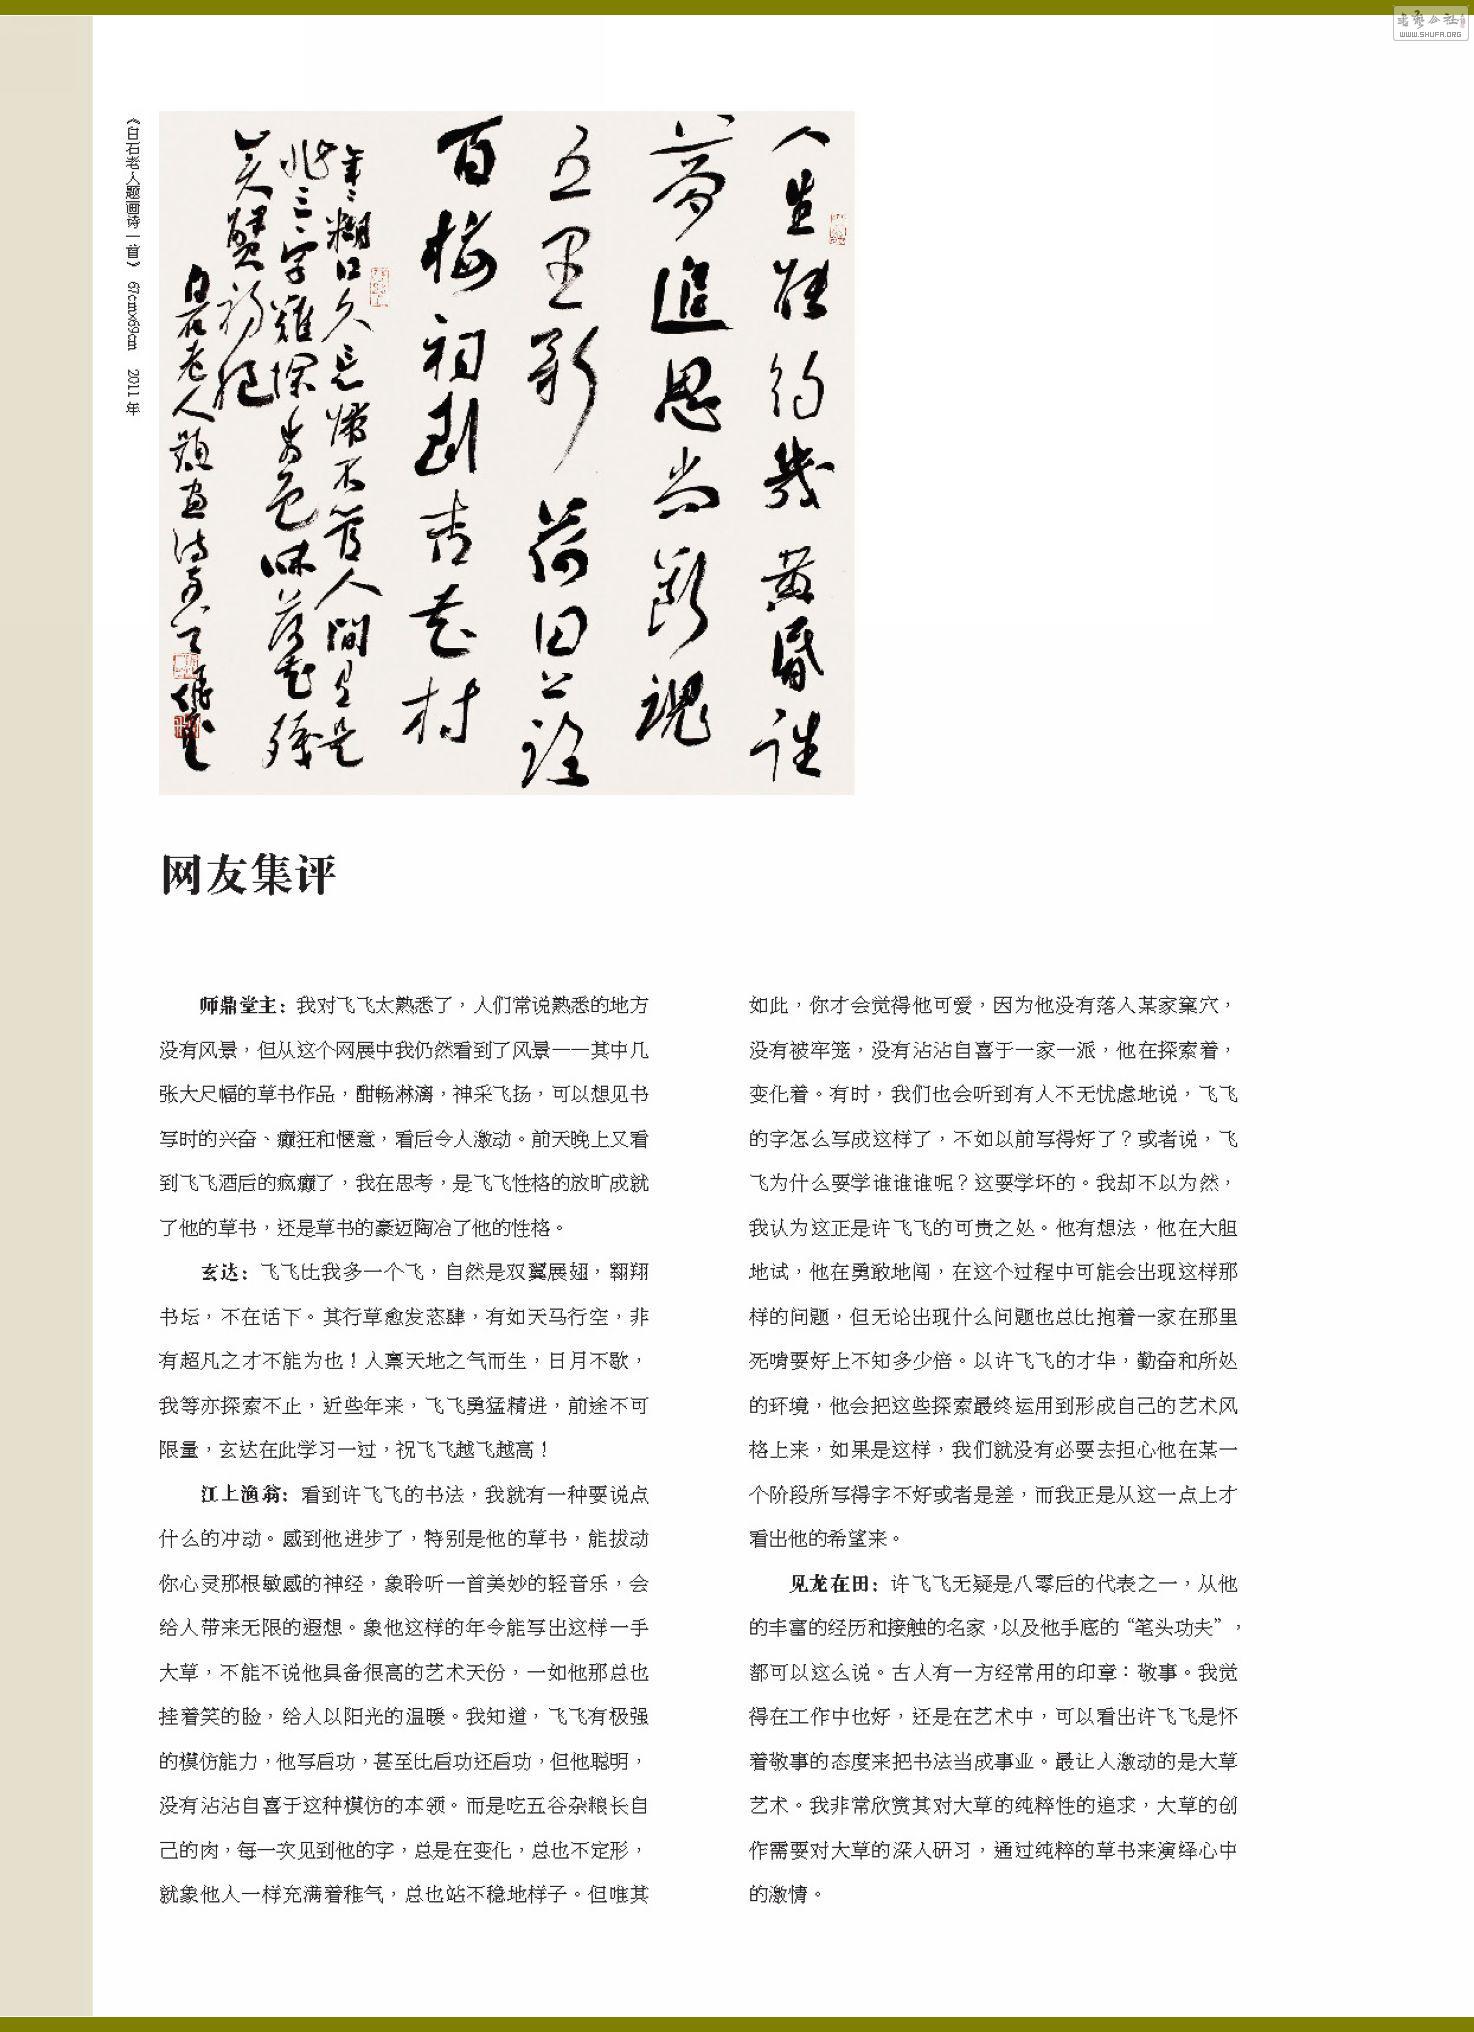 書艺公社
WWW.SHUFA.ORG
《白石老人题画诗一首》 67cm×69cm 2011年
人生能約幾黃昏往
夢追思尚斷魂
五里新荷田上路
百梅祠到杏花村
年糊口久忘不管人間是
三字
蟹初肥
白石老人題畫詩
网友集评
师鼎堂主：我对飞飞太熟悉了，人们常说熟悉的地方
没有风景，但从这个网展中我仍然看到了风景——其中几
张大尺幅的草书作品，酣畅淋漓，神采飞扬，可以想见书
写时的兴奋、癫狂和惬意，看后令人激动。前天晚上又看
到飞飞酒后的疯癫了，我在思考，是飞飞性格的放旷成就
了他的草书，还是草书的豪迈陶冶了他的性格。
玄达：飞飞比我多一个飞，自然是双翼展翅，翱翔
书坛，不在话下。其行草愈发恣肆，有如天马行空，非
有超凡之才不能为也！人禀天地之气而生，日月不歇，
我等亦探索不止，近些年来，飞飞勇猛精进，前途不可
限量，玄达在此学习一过，祝飞飞越飞越高！
江上渔翁：看到许飞飞的书法，我就有一种要说点
什么的冲动。感到他进步了，特别是他的草书，能拔动
你心灵那根敏感的神经，象聆听一首美妙的轻音乐，会
给人带来无限的遐想。象他这样的年令能写出这样一手
大草，不能不说他具备很高的艺术天份，一如他那总也
挂着笑的脸，给人以阳光的温暖。我知道，飞飞有极强
的模仿能力，他写启功，甚至比启功还启功，但他聪明，
没有沾沾自喜于这种模仿的本领。而是吃五谷杂粮长自
己的肉，每一次见到他的字，总是在变化，总也不定形，
就象他人一样充满着稚气，总也站不稳地样子。但唯其
如此，你才会觉得他可爱，因为他没有落入某家窠穴，
没有被牢笼，没有沾沾自喜于一家一派，他在探索着，
变化着。有时，我们也会听到有人不无忧虑地说，飞飞
的字怎么写成这样了，不如以前写得好了？或者说，飞
飞为什么要学谁谁谁呢？这要学坏的。我却不以为然，
我认为这正是许飞飞的可贵之处。他有想法，他在大胆
地试，他在勇敢地闯，在这个过程中可能会出现这样那
样的问题，但无论出现什么问题也总比抱着一家在那里
死啃要好上不知多少倍。以许飞飞的才华，勤奋和所处
的环境，他会把这些探索最终运用到形成自己的艺术风
格上来，如果是这样，我们就没有必要去担心他在某一
个阶段所写得字不好或者是差，而我正是从这一点上才
看出他的希望来。
见龙在田：许飞飞无疑是八零后的代表之一，从他
的丰富的经历和接触的名家，以及他手底的“笔头功夫”，
都可以这么说。古人有一方经常用的印章：敬事。我觉
得在工作中也好，还是在艺术中，可以看出许飞飞是怀
着敬事的态度来把书法当成事业。最让人激动的是大草
艺术。我非常欣赏其对大草的纯粹性的追求，大草的创
作需要对大草的深入研习，通过纯粹的草书来演绎心中
的激情。